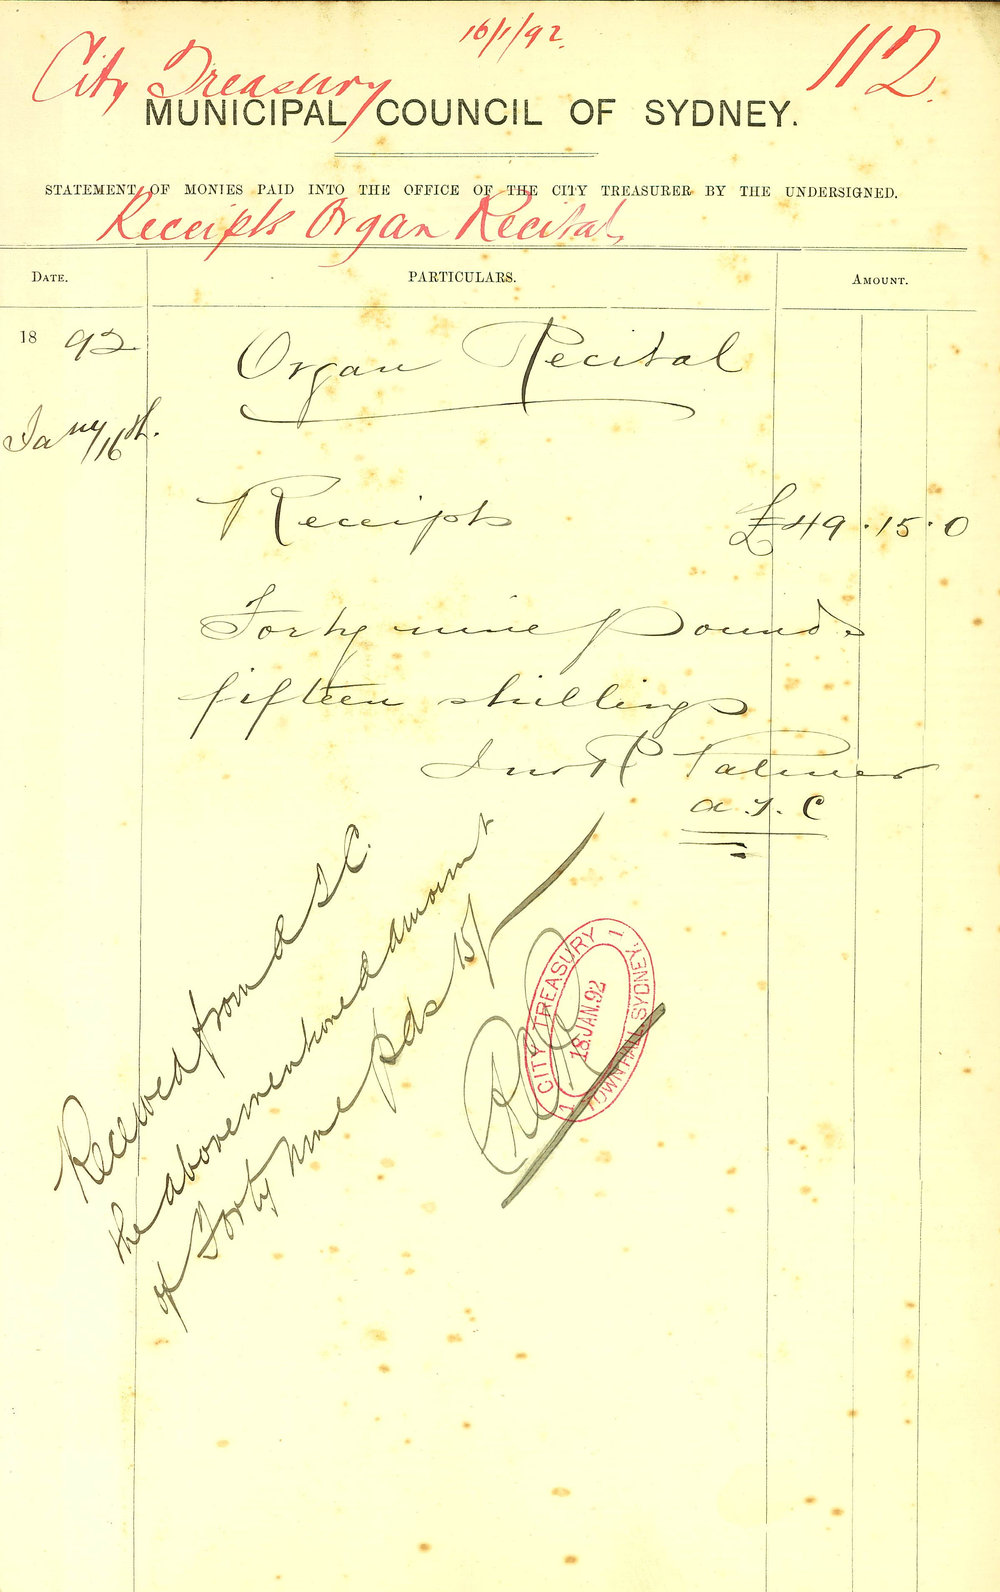 16/1/92.
City Treasury
112.
MUNICIPAL COUNCIL OF SYDNEY.
STATEMENT OF MONIES PAID INTO THE OFFICE OF THE CITY TREASURER BY THE UNDERSIGNED.
Receipts Organ Recital
DATE. PARTICULARS. AMOUNT.
1892 Organ Recital
Jany 16th.
Receipts £49.15.0
Forty nine pounds
fifteen shillings
Jno R Palmer
a.T.C
Received from a T C.
the abovementioned amount
of Forty nine pds 15/-
CITY TREASURY
18.JAN.92
TOWN HALL SYDNEY.